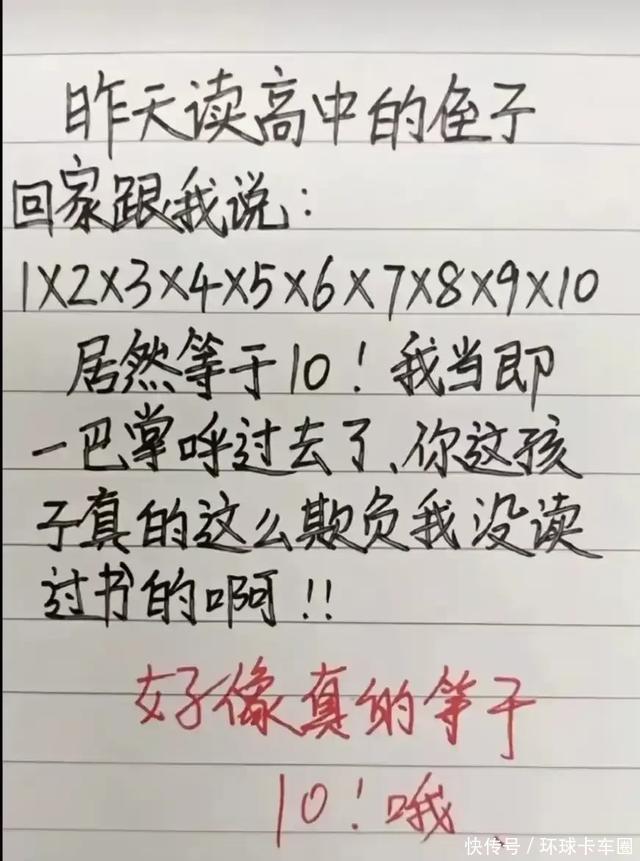 昨天读高中的侄子
回家跟我说:
1×2×3×4×5×6×7×8×9×10
居然等于10!我当即
一巴掌呼过去了、你这孩
子真的这么欺负我没读
过书的啊!!
好像真的等于
10!哦、
快传号/环球卡车圈